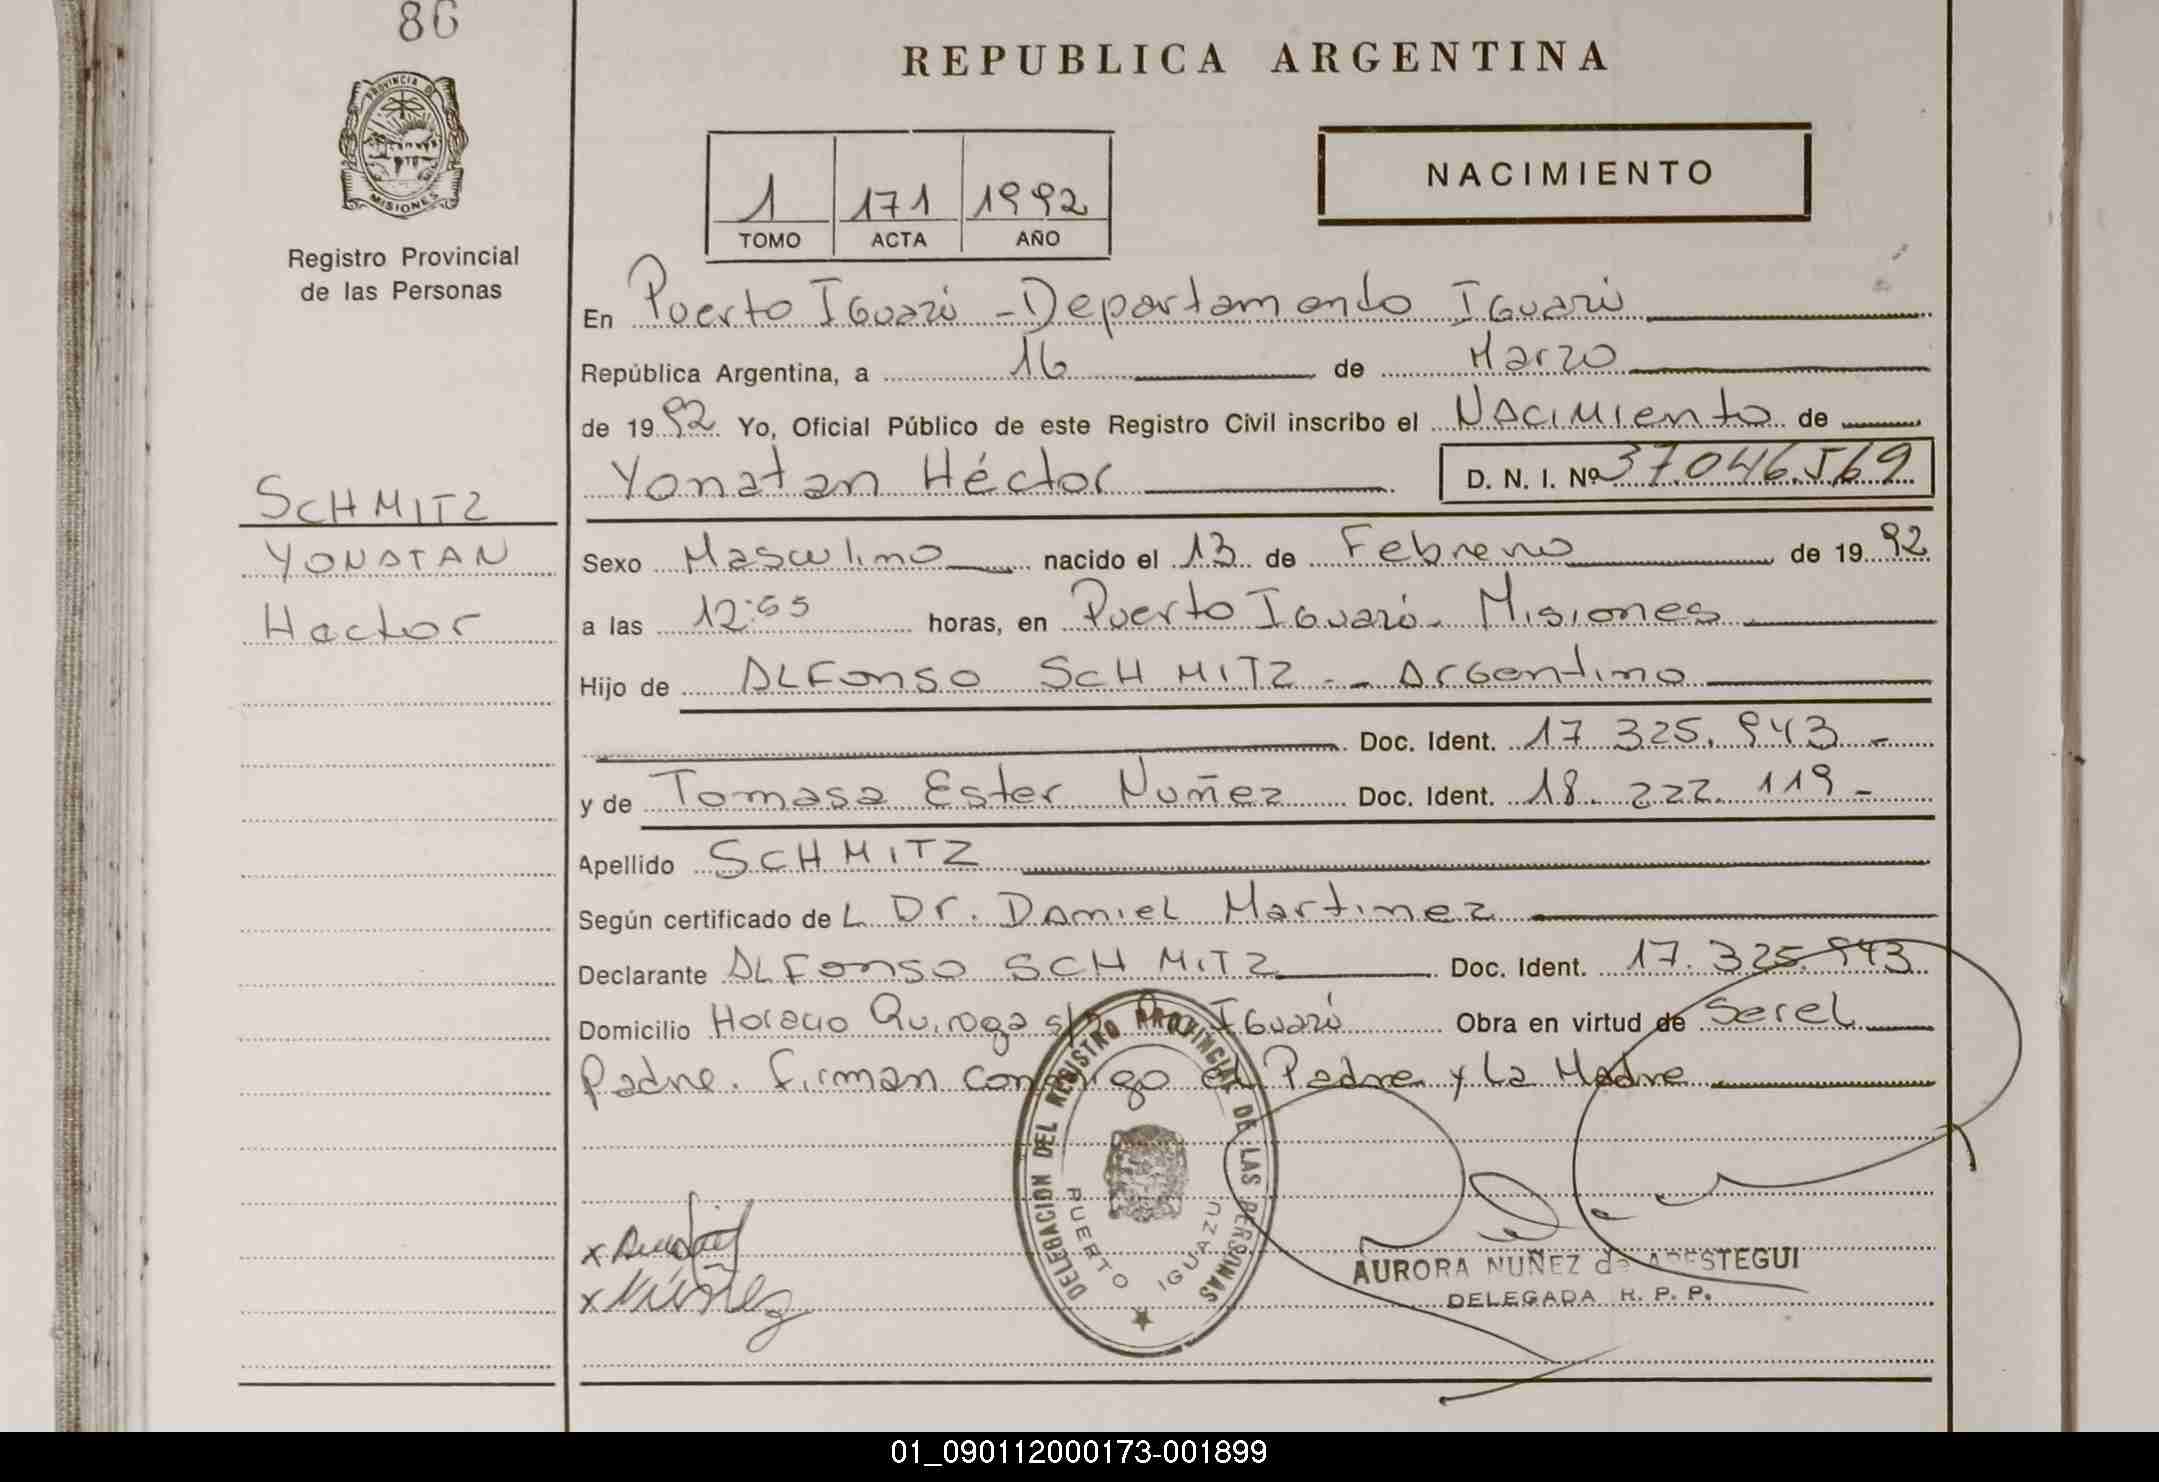 86
REPUBLICA ARGENTINA
PROVINCIA DE
MISIONES
Registro Provincial
de las Personas
1 171 1992
TOMO ACTA AÑO
NACIMIENTO
En Puerto Iguazú - Departamento Iguazú
República Argentina, a 16 de Marzo
de 1992 Yo, Oficial Público de este Registro Civil inscribo el Nacimiento de
Yonatan Héctor D. N. I. Nº 37.046.569
SCHMITZ
YONATAN
Hector
Sexo Masculino nacido el 13 de Febrero de 1992
a las 12:55 horas, en Puerto Iguazú - Misiones
Hijo de ALFonso SCHMITZ - Argentino
Doc. Ident. 17.325.943 -
y de Tomasa Ester Nuñez Doc. Ident. 18.222.119 -
Apellido SCHMITZ
Según certificado de L Dr. Daniel Martinez
Declarante ALFonso SCHMITZ Doc. Ident. 17.325.943
Domicilio Horacio Quiroga s/n Iguazú Obra en virtud de ser el
Padre. Firman conmigo el Padre y la Madre
DELEGACION DEL REGISTRO PROVINCIAL DE LAS PERSONAS
PUERTO IGUAZU
x
x Núñez
AURORA NUÑEZ de ARESTEGUI
DELEGADA R. P. P.
01_090112000173-001899